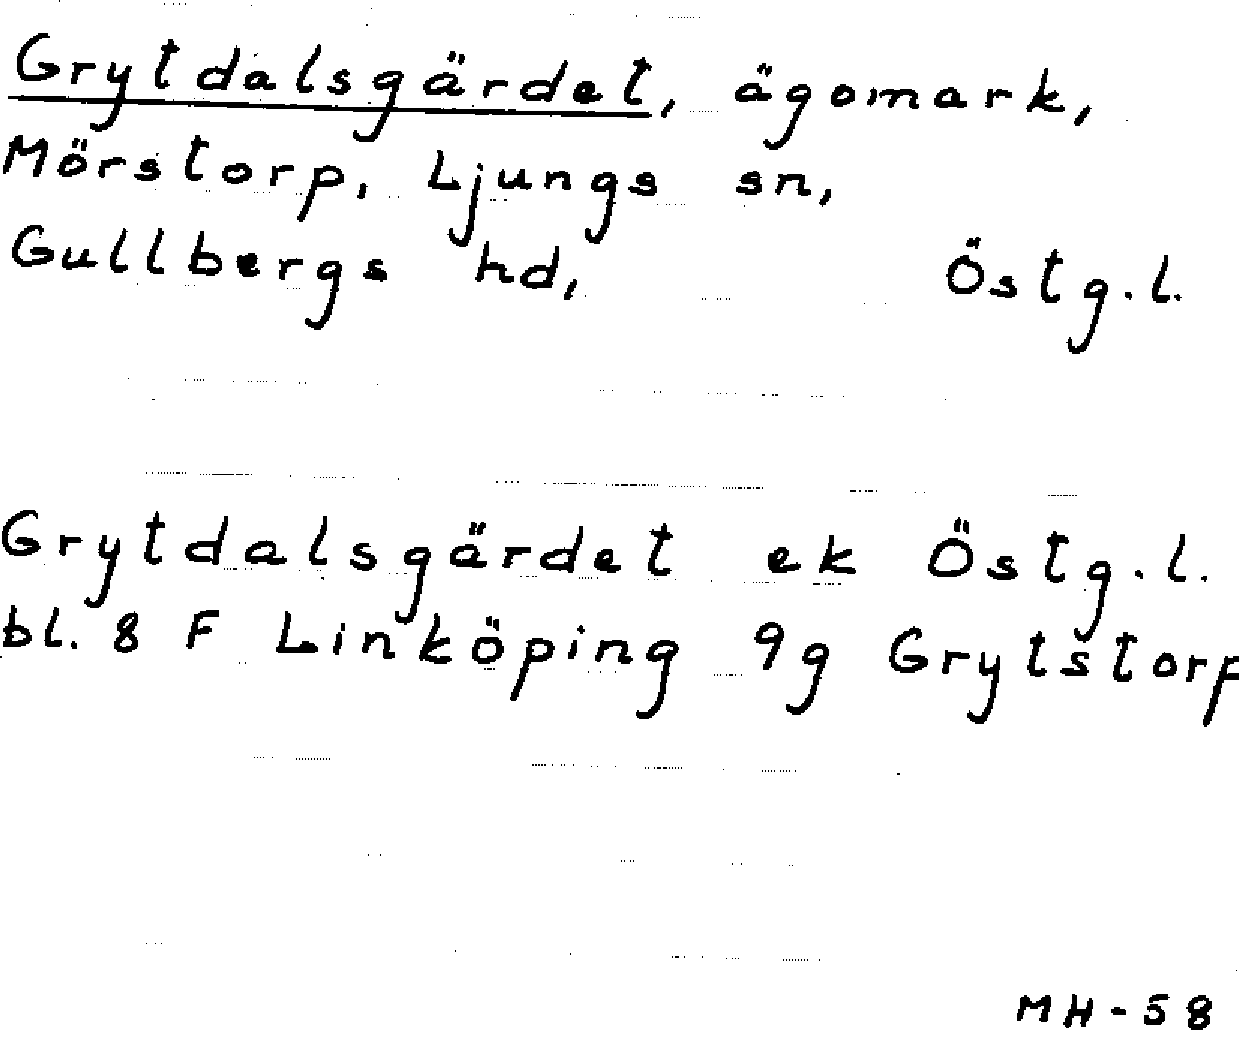 Grytdalsgärdet, ägomark,
Mörstorp, Ljungs sn,
Gullbergs hd, Östg.l.
Grytdalsgärdet ek Östg.l.
bl. 8 F Linköping 9g Grytstorp
MH-58